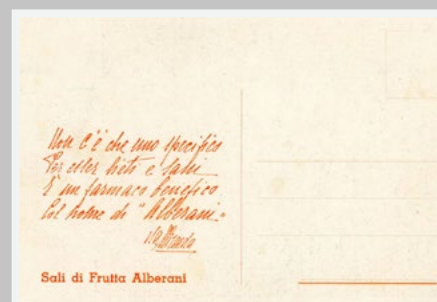 Non c'è che uno specifico
Per esser lieti e sani
È un farmaco benefico
Col nome di "Alberani"
Sali di Frutta Alberani